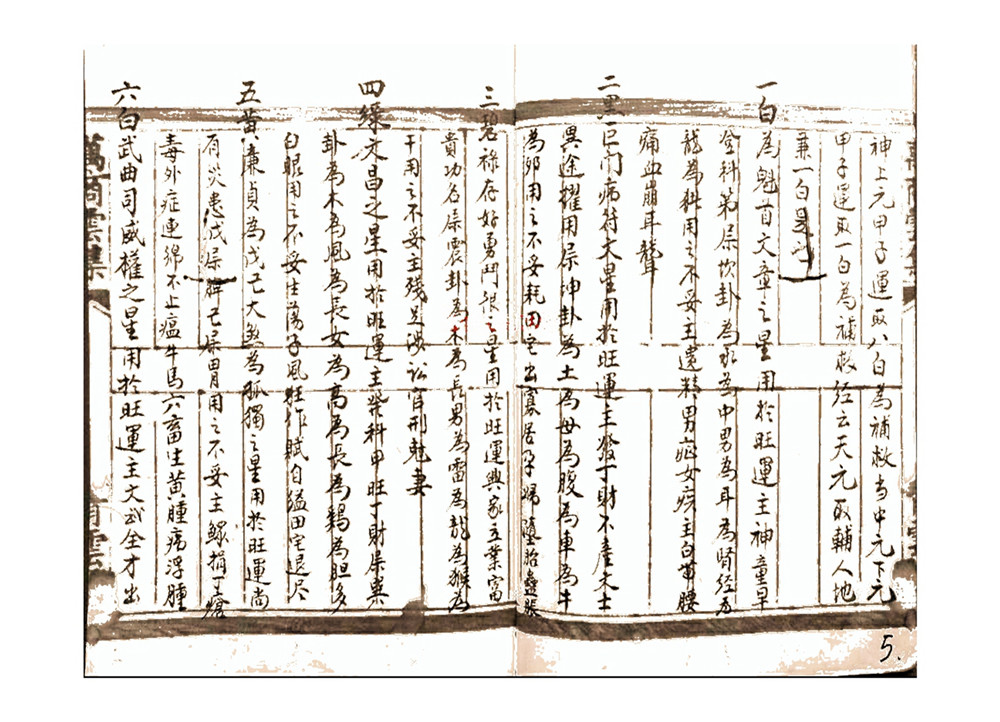 神上元甲子運取八白為補救当中元下元
甲子運取一白為補救经云天元取輔人地
兼一白是
一白為魁首文章之星用於旺運主神童早
登科第屬坎卦為水為中男為耳為肾经为
龍為科用之不妥主遺精男症女疾主白帶腰
痛血崩耳聾
二黑巨门病符木星用於旺運主發丁財不產文士
異途擢用屬坤卦為土為母為腹為車為牛
為卯用之不妥耗田宅出寡居孕婦墮胎蠱脹
三碧祿存好勇鬥狠之星用於旺運興家立業富
貴功名屬震卦為木為長男為雷為龍為猴為
干用之不妥主殘足讼官刑尅妻
四綠文昌之星用於旺運主發科甲旺丁財屬巽
卦為木為風為長女為高為長為鷄為胆多
白眼用之不妥生蕩子風狂作賦自縊田宅退尽
五黄廉貞為戊己大煞為孤獨之星用於旺運尚
有災患戊屬脾己屬胃用之不妥主鰥損丁瘡
毒外症連綿不上瘟牛馬六畜生黄腫病浮腫
六白武曲司威權之星用於旺運主文武全才出
萬商雲集
南雲
5.